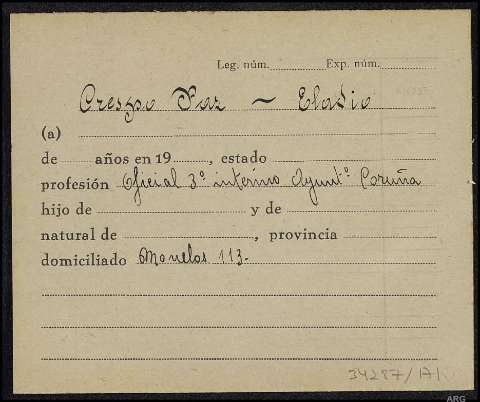 Leg. núm. Exp. núm.
Crespo Paz - Eladio
(a)
de años en 19 , estado
profesión Oficial 3º interino Ayuntº Coruña
hijo de y de
natural de , provincia
domiciliado Monelos 113.
34287/171
ARG